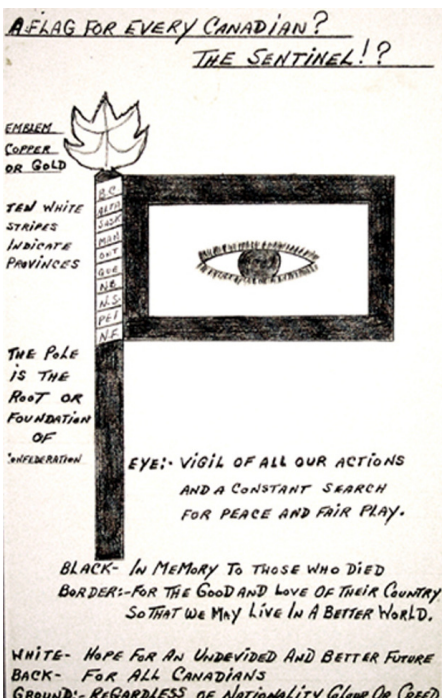 A FLAG FOR EVERY CANADIAN?
THE SENTINEL!?
EMBLEM
COPPER
OR GOLD
TEN WHITE
STRIPES
INDICATE
PROVINCES
B.C.
ALTA
SASK
MAN
ONT
QUE
N.B.
N.S.
PEI
N.F.
THE POLE
IS THE
ROOT OR
FOUNDATION
OF
CONFEDERATION
EYE:- VIGIL OF ALL OUR ACTIONS
AND A CONSTANT SEARCH
FOR PEACE AND FAIR PLAY.
BLACK- IN MEMORY TO THOSE WHO DIED
BORDER:- FOR THE GOOD AND LOVE OF THEIR COUNTRY
SO THAT WE MAY LIVE IN A BETTER WORLD.
WHITE- HOPE FOR AN UNDEVIDED AND BETTER FUTURE
BACK- FOR ALL CANADIANS
GROUND:- REGARDLESS OF NATIONALITY COLOR OR CREED